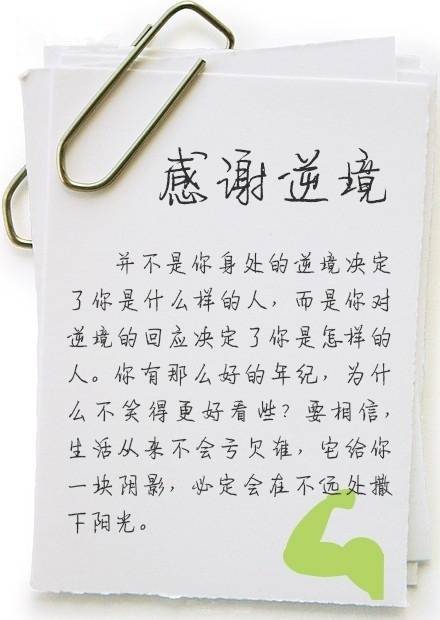 感谢逆境
并不是你身处的逆境决定
了你是什么样的人，而是你对
逆境的回应决定了你是怎样的
人。你有那么好的年纪，为什
么不笑得更好看些？要相信，
生活从来不会亏欠谁，它给你
一块阴影，必定会在不远处撒
下阳光。